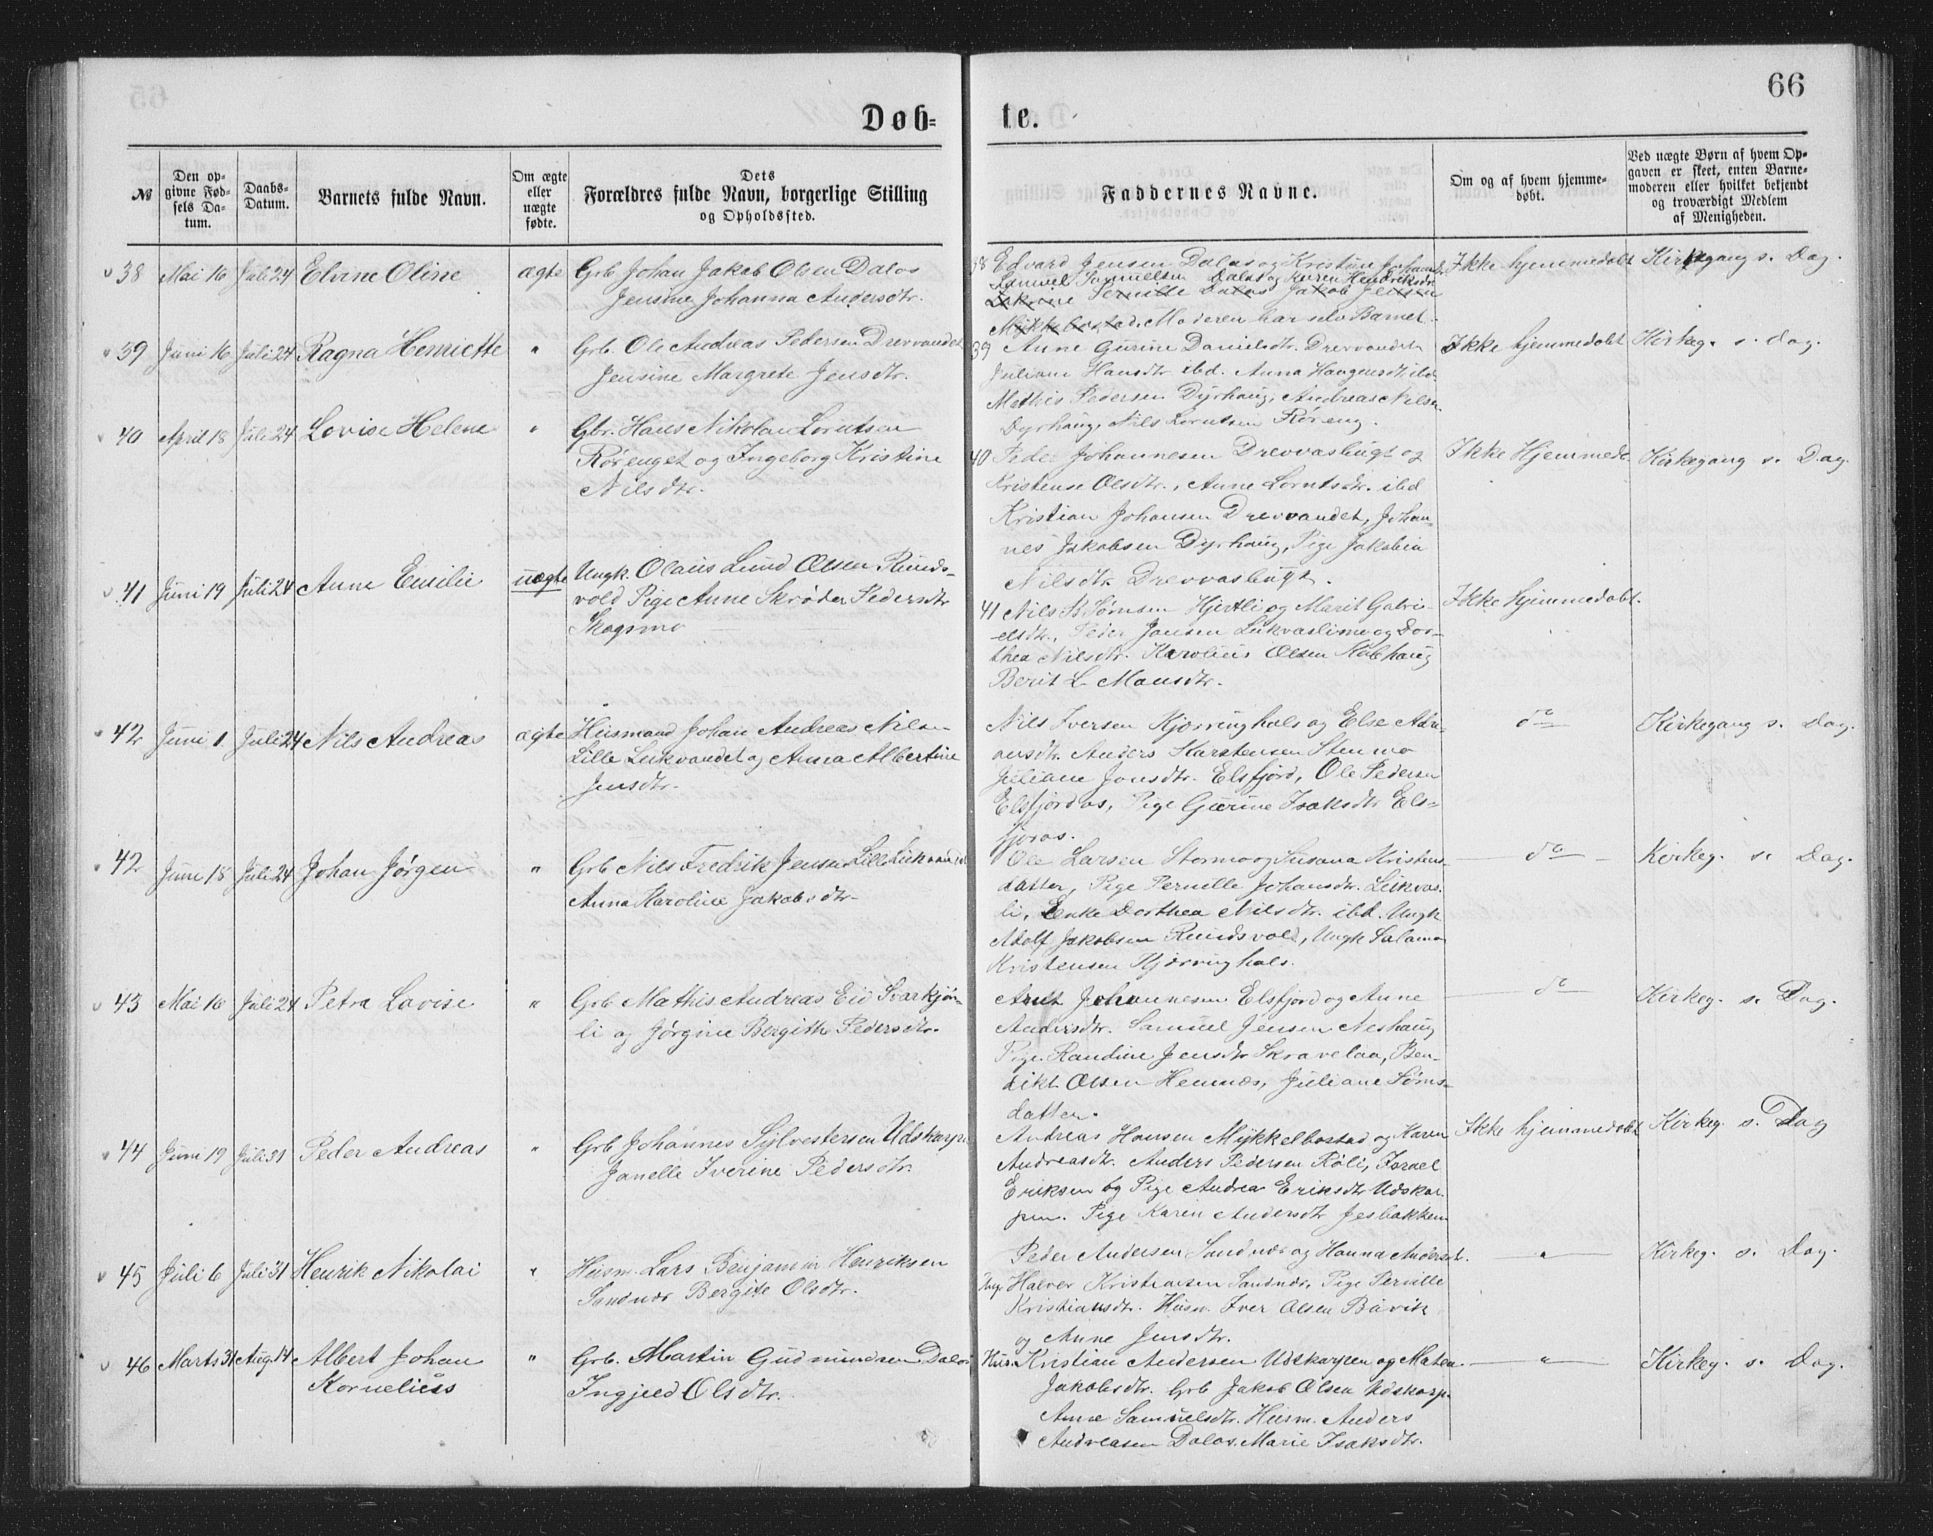 66
Døb=
te.
№
Den op-
givne Fød-
sels Da-
tum.
Daabs-
Datum.
Barnets fulde Navn.
Om ægte
eller
uægte
fødte.
Dets
Forældres fulde Navn, borgerlige Stilling
og Opholdssted.
Faddernes Navne.
Om og af hvem hjemme-
døbt.
Ved uægte Børn af hvem Op-
gaven er skeet, enten Barne-
moderen eller hvilket bekjendt
og troværdigt Medlem
af Menigheden.
38 Mai 16 Juli 24 Elvine Oline ægte Grb Johan Jakob Olsen Dalos
Jensine Johanna Andersdtr.
38 Edvard Jensen Dalos og Kristine Johansd.
Samuel Samuelsen Dalos og Karen Henriksdtr
Pernille Dalos Jakob Jensen
Mykkelbostad. Moderen bar selv Barnet.
Ikke hjemmedøbt Kirkegang s. Dag.
39 Juni 16 Juli 24 Ragna Henriette " Grb. Ole Andreas Pedersen Drevvandet
Jensine Margrete Jensdtr.
39 Anne Gurine Danielsdtr. Drevvandet
Juliane Hansdtr ibd. Anna Haagensdtr. ibd.
Mathis Pedersen Dyrhaug, Andreas Nilsen
Dyrhaug, Nils Lorntsen Røreng.
Ikke hjemmedøbt Kirkeg. s. dag.
40 April 18 Juli 24 Lovise Helene " Gbr. Hans Nikolai Lorntsen
Rørenget og Ingeborg Kristine
Nilsdtr.
40 Peder Johannesen Drevvasbugt og
Kristense Olsdtr., Anne Lorntsdtr. ibd
Kristian Johansen Drevvandet, Johan-
nes Jakobsen Dyrhaug, Pige Jakobia
Nilsdtr. Drevvasbugt.
Ikke Hjemmedt. Kirkegang s. Dag.
41 Juni 19 Juli 24 Anne Emilie uægte Ungk. Olaus Lund Olsen Runds-
vold Pige Anne Skrøder Pedersdtr
Skogsmo
41 Nils B Sørnsen Hjertli og Marit Gabri-
elsdtr., Peder Jansen Lukvaslimo og Dor-
thea Nilsdtr. Karolius Olsen Kobhaug
Berit L. Mansdtr.
Ikke hjemmedøbt.
42 Juni 1. Juli 24 Nils Andreas ægte Husmand Johan Andreas Nilsen
Lille Lukvandet og Anna Albertine
Jensdtr.
Nils Iversen Kjærringhals og Else Adri-
ansdtr. Anders Karstensen Stenmo
Juliane Jonsdtr. Elsfjord, Ole Pedersen
Elsfjordos, Pige Gurine Isaksdtr Els-
fjoros.
do Kirkegang s. Dag.
42 Juni 18 Juli 24 Johan Jørgen " Grb Nils Fredrik Jensen Lille Lukvandet
Anna Karoline Jakobsdtr.
Ole Larsen Stormo og Susana Kristens-
datter, Pige Pernille Johansdtr. Lukvas-
li, Enke Dorthea Nilsdtr. ibd. Ungk
Adolf Jakobsen Rundsvold, Ungk Salamon
Kristensen Kjærringhals.
do Kirkeg. s. Dag.
43 Mai 16 Juli 24 Petra Lovise " Grb Mathis Andreas Eid Svartkjøn-
li og Jørgine Bergithe Pedersdtr.
Arnt Johannesen Elsfjord og Anne
Andersdtr. Samuel Jensen Neshaug
Pige. Randine Jensdtr Skravelaa, Ben-
dikt Olsen Hemnæs, Juliane Sørns-
datter.
do Kirkeg. s. Dag.
44 Juni 19 Juli 31 Peder Andreas " Grb Johannes Sylvestersen Udskarpen
Janelle Iverine Pedersdtr.
Andreas Hansen Mykkelbostad og Karen
Andreasdtr. Anders Pedersen Røli, Israel
Eriksen og Pige Andrea Eriksdtr Udskar-
pen. Pige Karen Andersdtr Jesbakken
Ikke hjemmedøbt Kirkeg. s. Dag
45 Juli 6 Juli 31 Henrik Nikolai " Husm. Lars Benjamin Henriksen
Sandnæs Bergite Olsdtr.
Peder Andersen Sandnæs og Hanna Andersdtr.
Ungk Halver Kristiansen Sandnæs, Pige Pernille
Kristiansdtr. Husm. Iver Olsen Bavik
og Anne Jensdtr.
" Kirkeg. s. Dag.
46 Marts 31 Aug. 14 Albert Johan
Kornelius " Grb. Martin Gudmundsen Dalos
Ingjed Olsdtr.
Husm Kristian Andersen Udskarpen og Matea
Jakobsdtr. Grb Jakob Olsen Udskarp.
Anne Samuelsdtr. Husm. Anders
Andreasen Dalos. Marie Isaksdtr.
" Kirkeg. s. Dag.